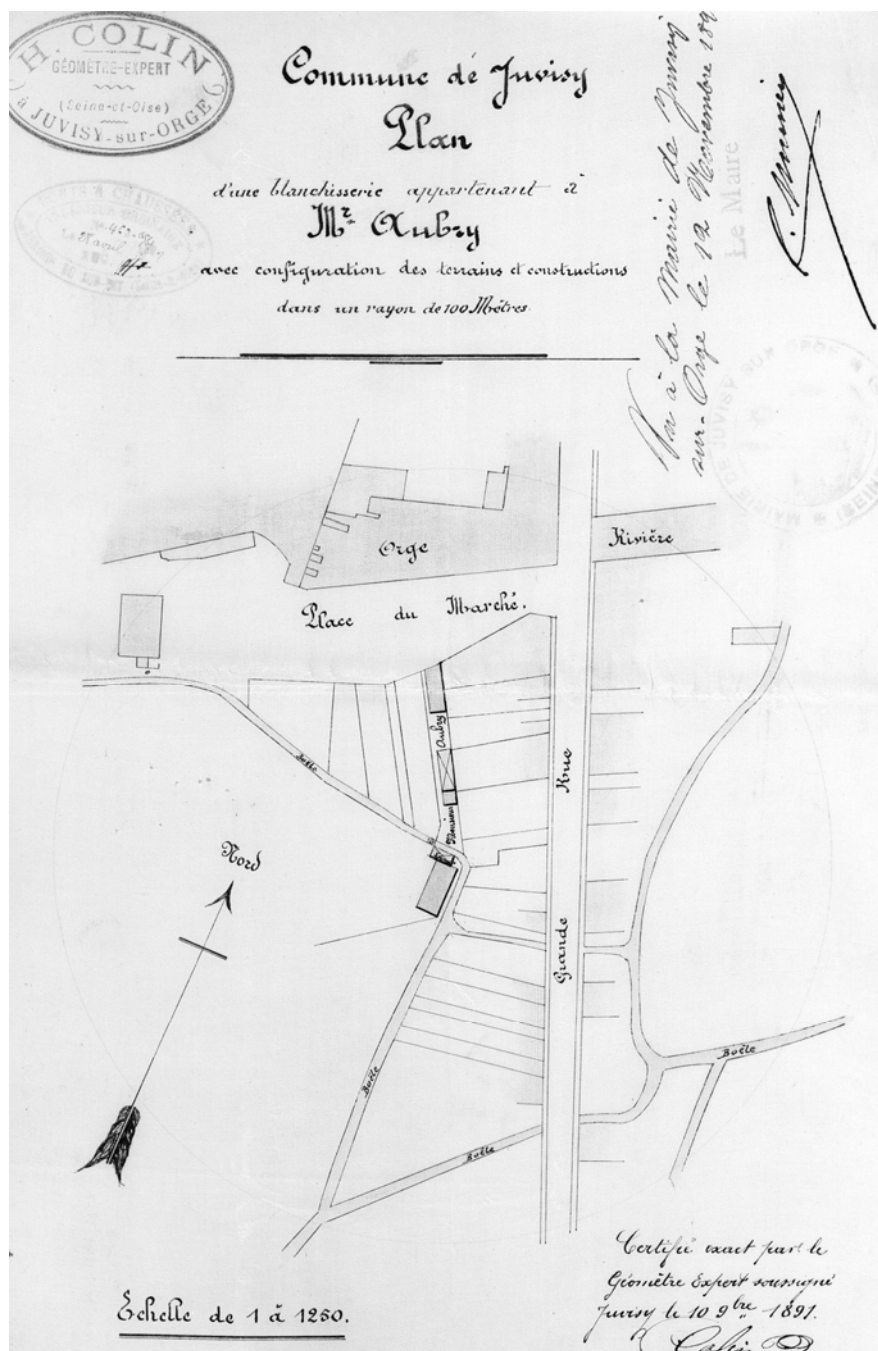 H. COLIN
GÉOMÈTRE-EXPERT
(Seine-et-Oise)
à JUVISY-sur-ORGE
Commune de Juvisy
Plan
d'une blanchisserie appartenant à
Mr Aubry
avec configuration des terrains et constructions
dans un rayon de 100 Mètres.
Vu à la Mairie de Juvisy
sur-Orge le 12 Novembre 189
Le Maire
MAIRIE DE JUVISY SUR ORGE
Orge
Rivière
Place du Marché.
Monsieur Aubry
Grande Rue
Boële
Boële
Boële
Boële
Nord
Echelle de 1 à 1250.
Certifié exact par le
Géomètre Expert soussigné
Juvisy le 10 9bre 1891.
Colin